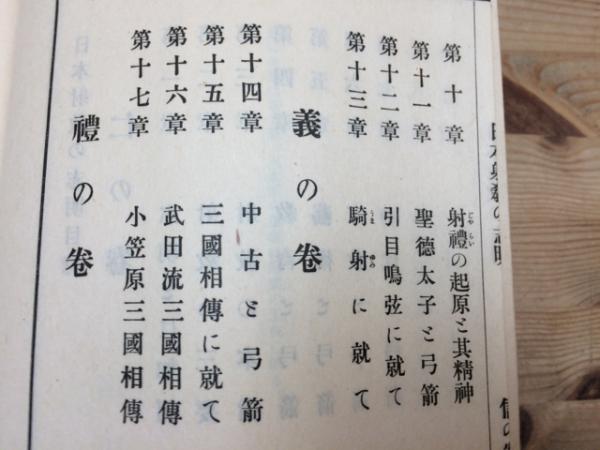 第十章 射禮の起原と其精神
第十一章 聖德太子と弓箭
第十二章 引目鳴弦に就て
第十三章 騎射に就て
義の卷
第十四章 中古と弓箭
第十五章 三國相傳に就て
第十六章 武田流三國相傳
第十七章 小笠原三國相傳
禮の卷